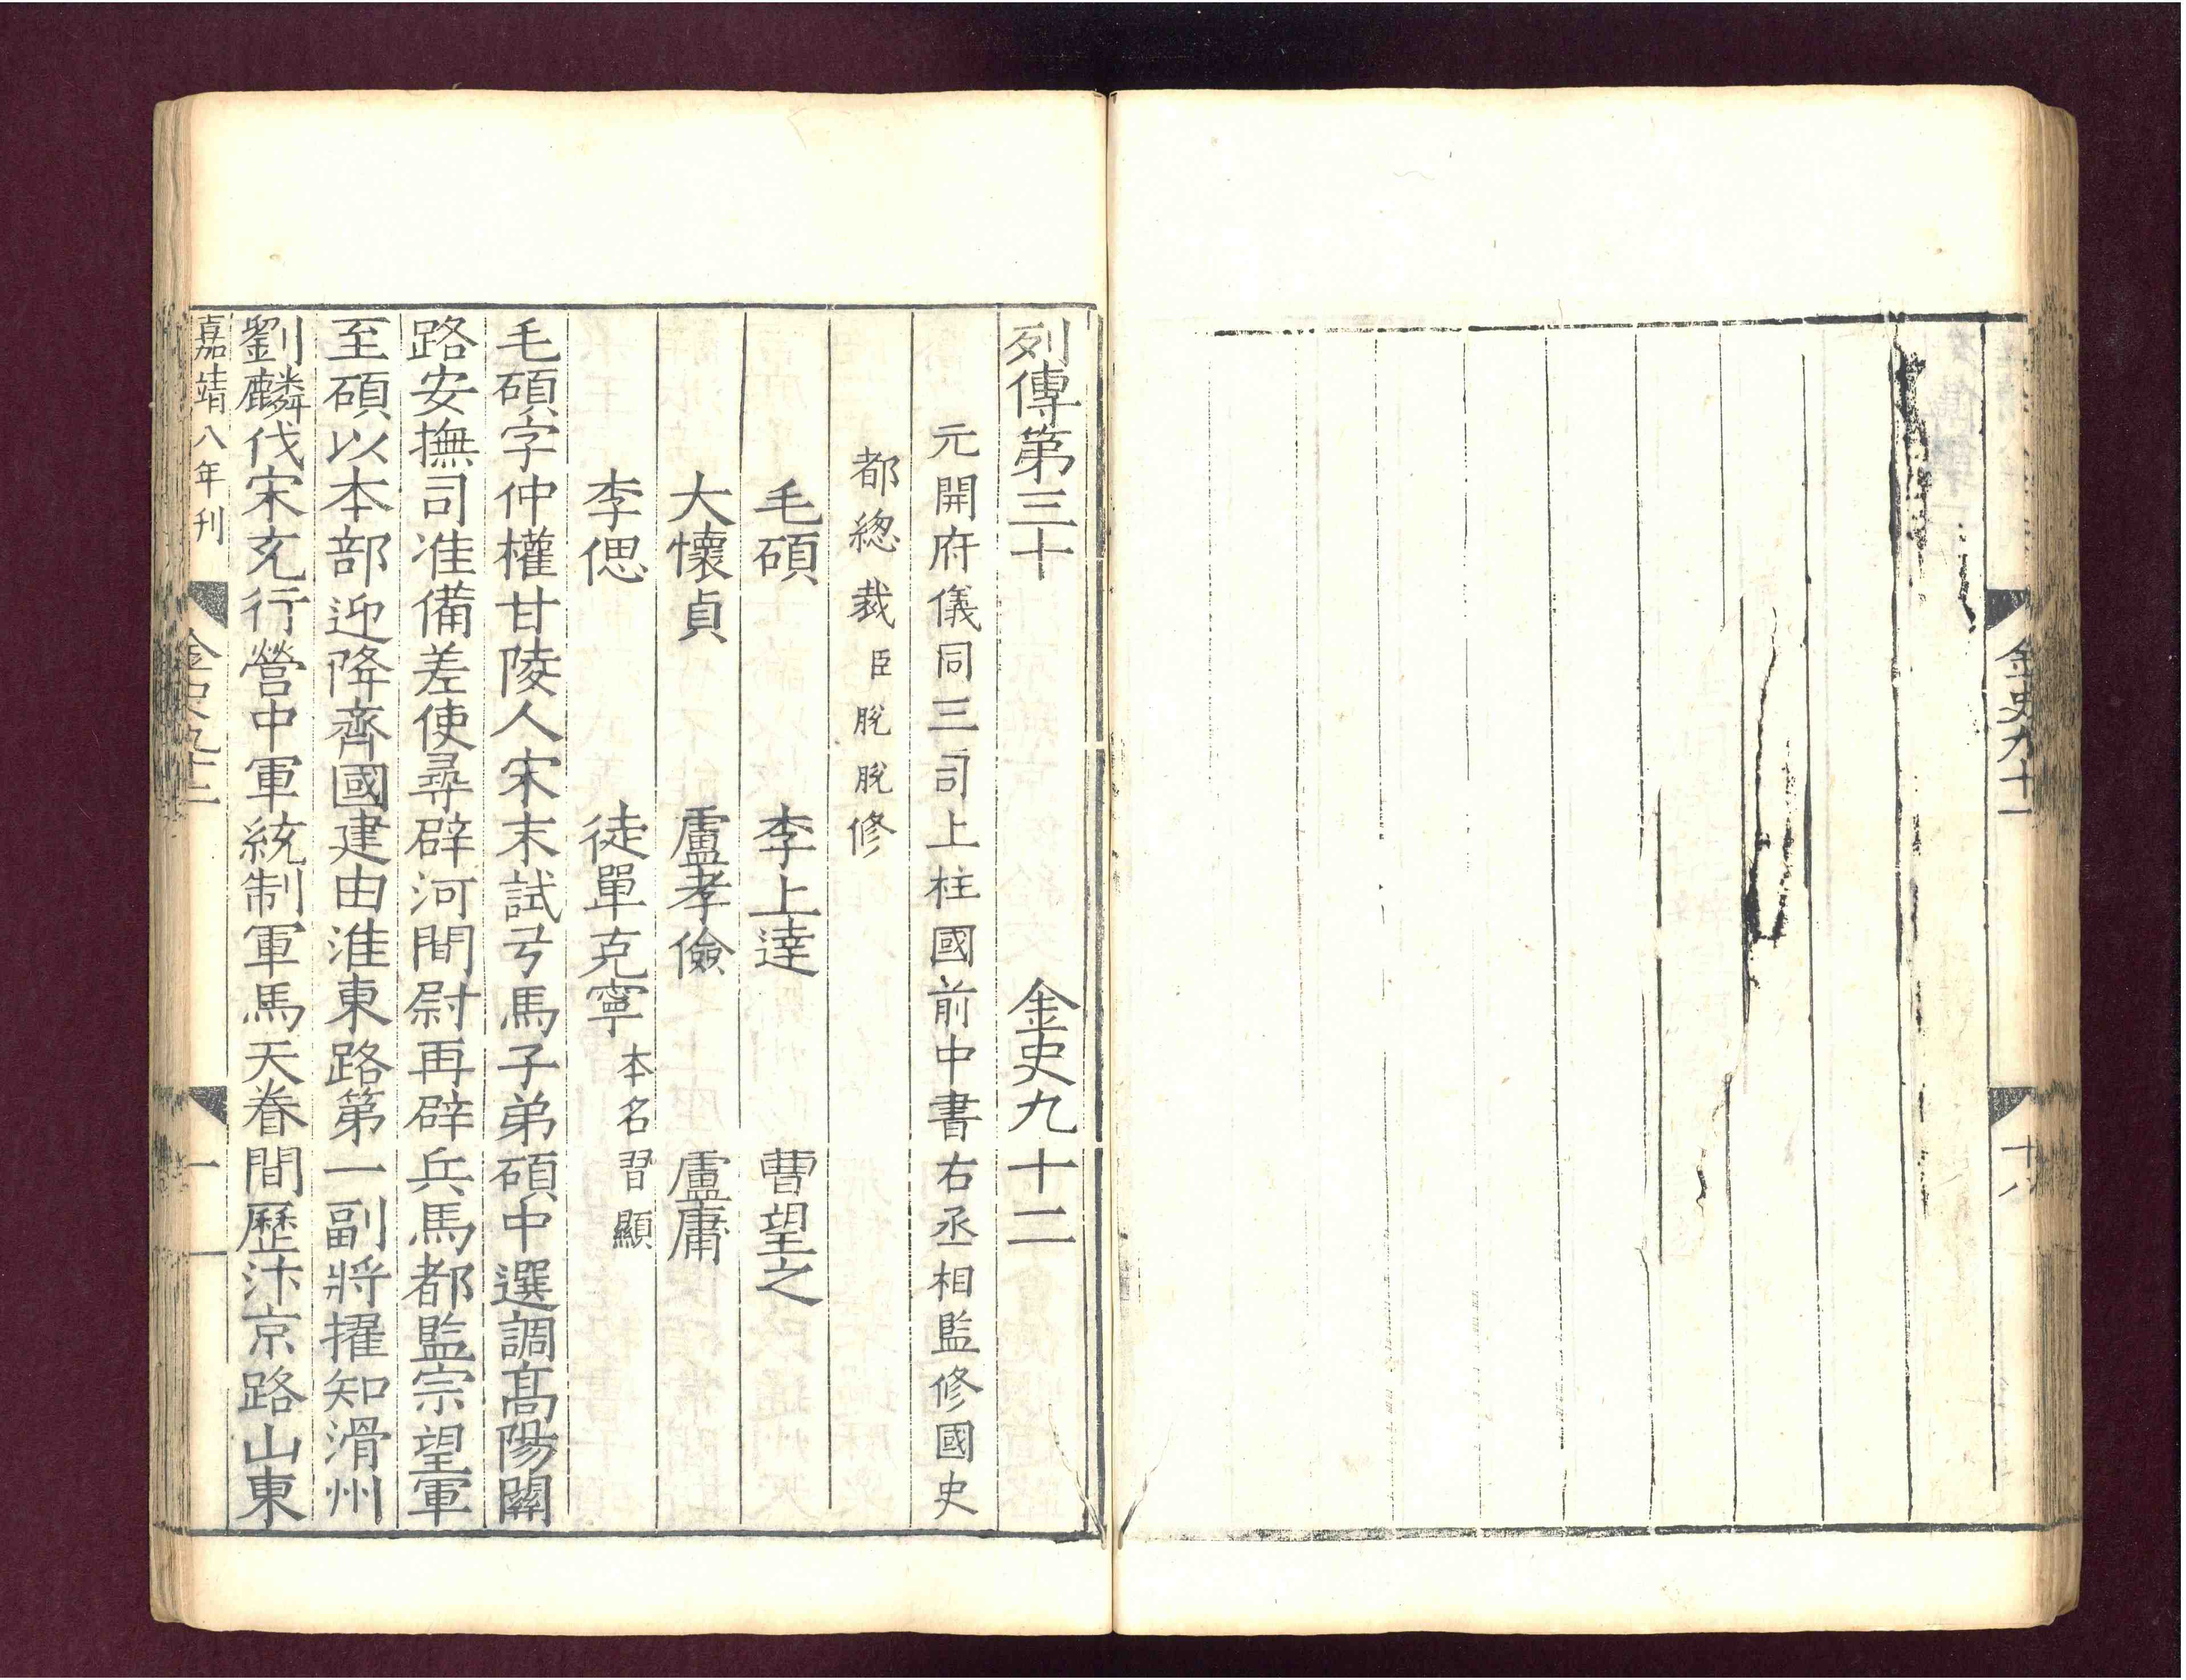 金史九十一
十八
列傳第三十　金史九十二
元開府儀同三司上柱國前中書右丞相監修國史
都總裁臣脫脫修
毛碩　李上達　曹望之
大懷貞　盧孝儉　盧庸
李偲　徒單克寧本名習顯
毛碩字仲權甘陵人宋末試弓馬子弟碩中選調髙陽關
路安撫司准備差使尋辟河間尉再辟兵馬都監宗望軍
至碩以本部迎降齊國建由淮東路第一副將擢知滑州
劉麟伐宋充行營中軍統制軍馬天眷間歷汴京路山東
嘉靖八年刊
金史九十二
一